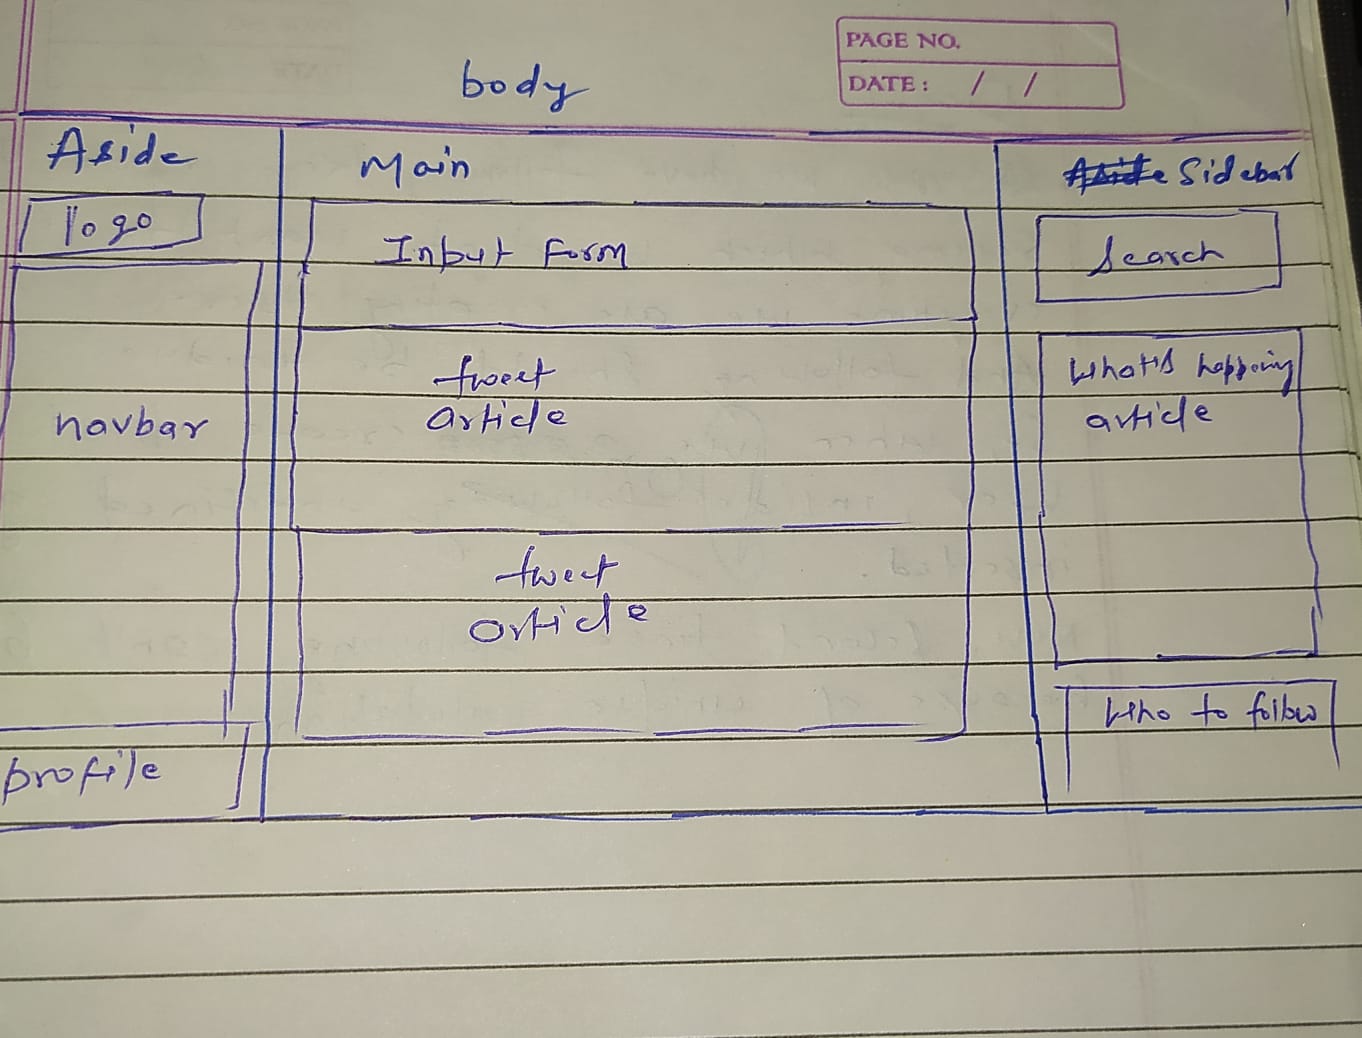 PAGE NO.
DATE: / /
body
Aside
logo
navbar
profile
Main
Input Form
tweet
article
tweet
article
Sidebar
Search
What's happening
article
Who to follow